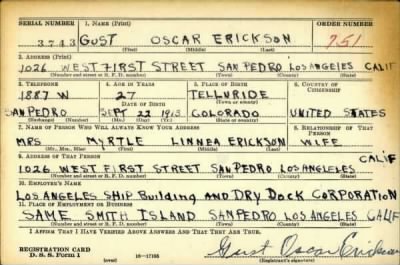 SERIAL NUMBER 1. NAME (Print) ORDER NUMBER
3743 GUST OSCAR ERICKSON 751
(First) (Middle) (Last)
2. ADDRESS (Print)
1026 WEST FIRST STREET SAN PEDRO LOS ANGELES CALIF
(Number and street or R. F. D. number) (Town) (County) (State)
3. TELEPHONE 4. AGE IN YEARS 5. PLACE OF BIRTH 6. COUNTRY OF CITIZENSHIP
1887 W 27 TELLURIDE
DATE OF BIRTH (Town or county)
SAN PEDRO SEPT 22 1913 COLORADO UNITED STATES
(Exchange) (Number) (Mo.) (Day) (Yr.) (State or country)
7. NAME OF PERSON WHO WILL ALWAYS KNOW YOUR ADDRESS 8. RELATIONSHIP OF THAT PERSON
MRS MYRTLE LINNEA ERICKSON WIFE
(Mr., Mrs., Miss) (First) (Middle) (Last)
9. ADDRESS OF THAT PERSON CALIF
1026 WEST FIRST STREET SAN PEDRO LOS ANGLELES
(Number and street or R. F. D. number) (Town) (County) (State)
10. EMPLOYER'S NAME
LOS ANGELES SHIP BUILDING AND DRY DOCK CORPORATION
11. PLACE OF EMPLOYMENT OR BUSINESS
SAME SMITH ISLAND SAN PEDRO LOS ANGELES CALIF
(Number and street or R. F. D. number) (Town) (County) (State)
I AFFIRM THAT I HAVE VERIFIED ABOVE ANSWERS AND THAT THEY ARE TRUE.
REGISTRATION CARD
D. S. S. Form 1 (over) 16—17105 Gust Oscar Erickson